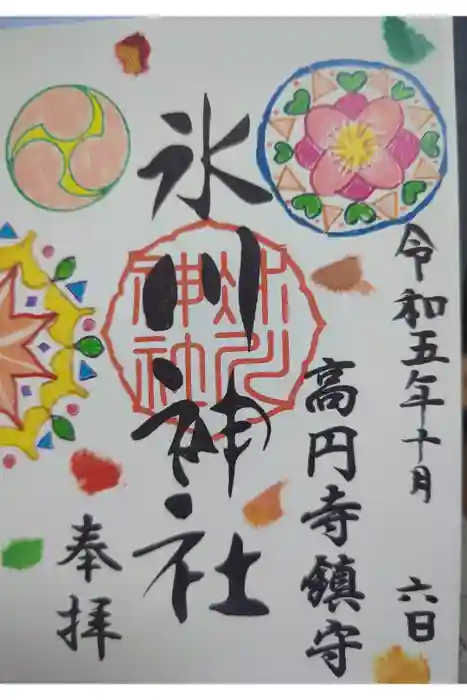 令和五年十月 六日
高円寺鎮守
氷川神社
氷川神社
奉拝